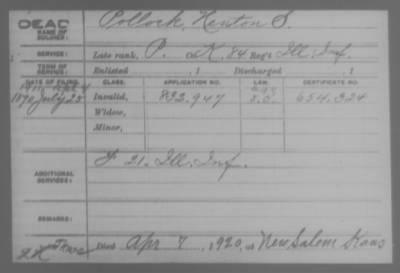 DEAD
NAME OF SOLDIER: Pollock, Henton S.
SERVICE: Late rank, P. Co. K, 84 Reg't Ill. Inf.
TERM OF SERVICE: Enlisted , 1 Discharged , 1
DATE OF FILING. CLASS. APPLICATION NO. LAW. CERTIFICATE NO.
1890 July 25 Invalid, 892.947 654.324
Widow,
Minor,
ADDITIONAL SERVICES: F 21. Ill. Inf.
REMARKS:
Died Apr 7, 1920, at New Salem Kans